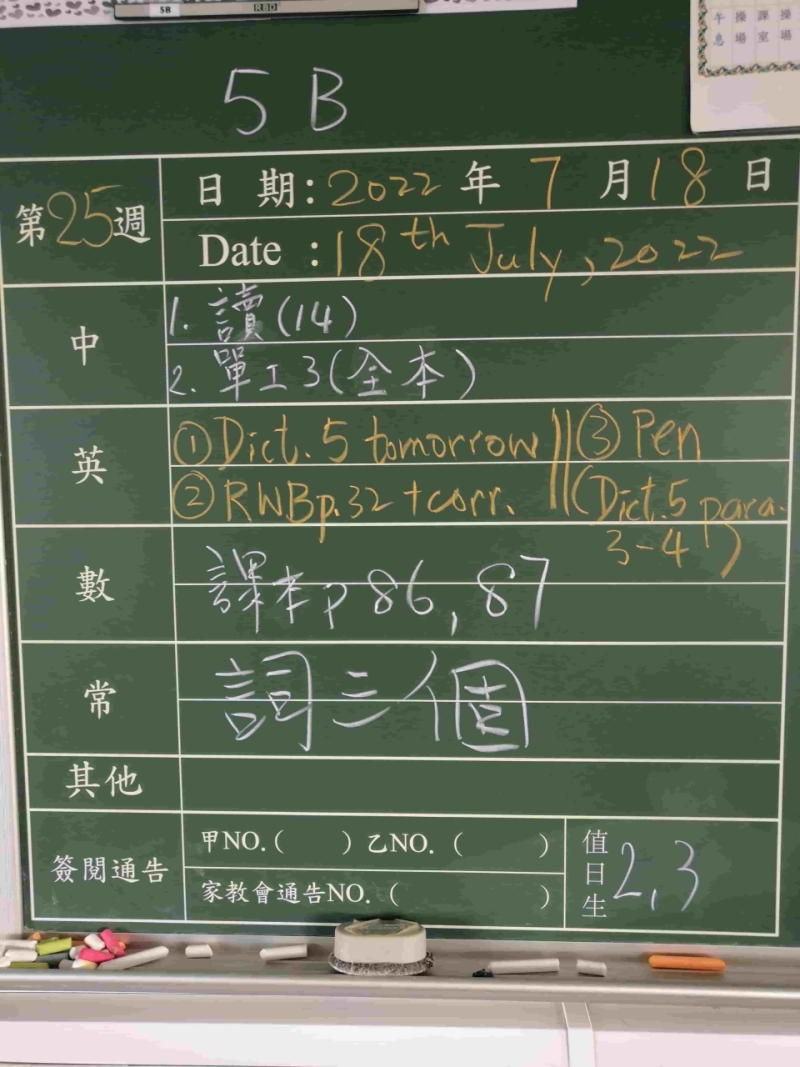 5B RBD
午 操 課 操
息 場 室 場
5 B
第25週
日 期:2022 年 7 月 18 日
Date :18th July, 2022
中
1. 讀(14)
2. 單工3(全本)
英
① Dict. 5 tomorrow
② RWBp.32 + corr.
③ Pen
(Dict.5 para.
3-4)
數
課本p86,87
常
詞三個
其他
簽閱通告
甲NO.( ) 乙NO. ( )
家教會通告NO. ( )
值日生 2,3